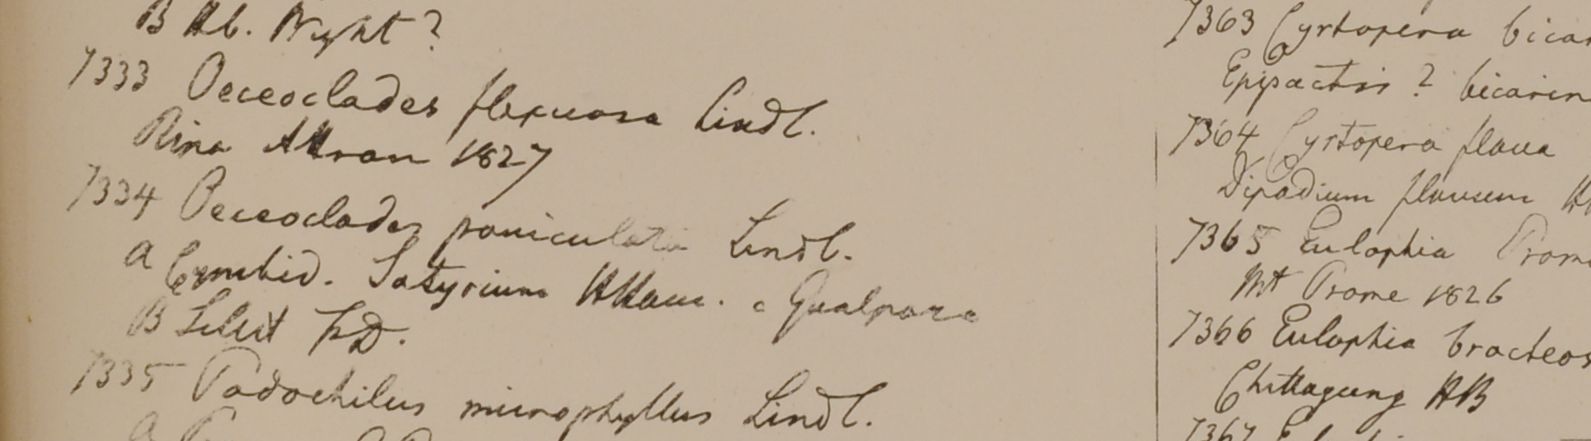 B Hb. Wight?
7333 Oeceoclades flexuosa Lindl.
Ripa Attran 1827
7334 Oeceoclades paniculata Lindl.
a Cymbid. Satyrium HHam. e Gualpara
B Silhet FD.
7335 Podochilus microphyllus Lindl.
7363 Cyrtopera bicar
Epipactis? bicarin
7364 Cyrtopera flava
Dipodium flavum
7365 Eulophia Prome
Mt Prome 1826
7366 Eulophia bracteos
Chittagung HB
7367